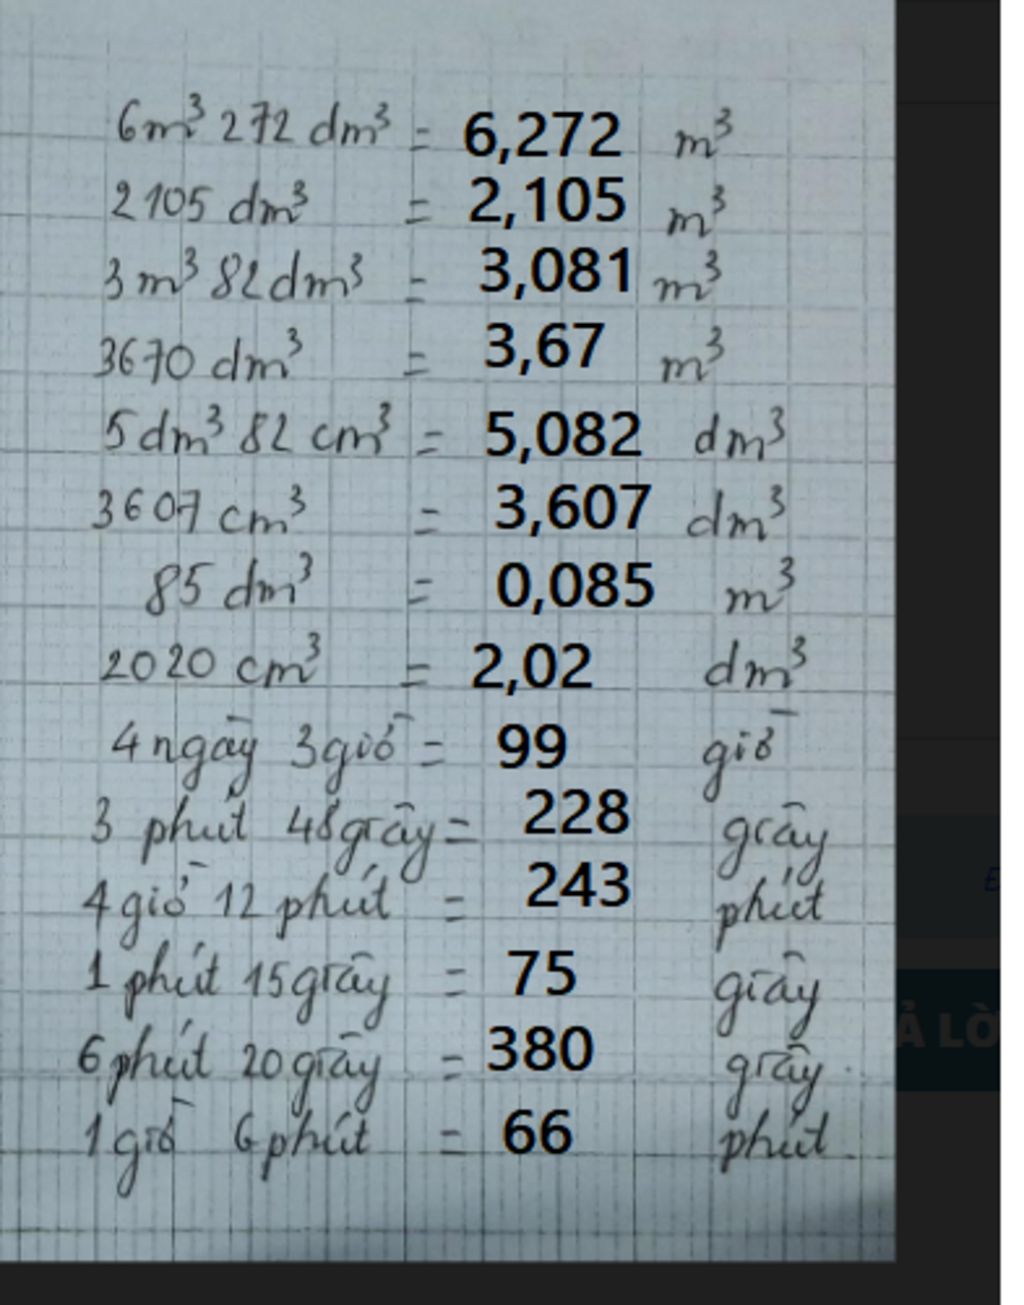 6m³ 272 dm³ = 6,272 m³
2105 dm³ = 2,105 m³
3m³ 82dm³ = 3,081 m³
3670 dm³ = 3,67 m³
5dm³ 82 cm³ = 5,082 dm³
3607 cm³ = 3,607 dm³
85 dm³ = 0,085 m³
2020 cm³ = 2,02 dm³
4 ngày 3 giờ = 99 giờ
3 phút 48 giây = 228 giây
4 giờ 12 phút = 243 phút
1 phút 15 giây = 75 giây
Ả LỜ
6 phút 20 giây = 380 giây
1 giờ 6 phút = 66 phút